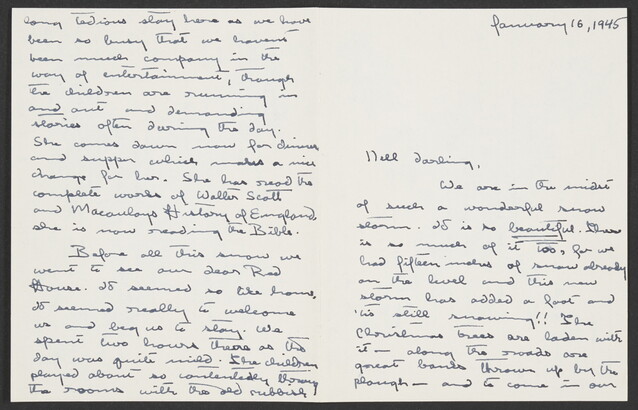 January 16, 1945
Nell darling,
We are in the midst
of such a wonderful snow
storm. It is so beautiful. There
is so much of it too, for we
had fifteen inches of snow already
on the level and this new
storm has added a foot and
'tis still snowing!! The
Christmas trees are laden with
it – along the roads are
great banks thrown up by the
plough – and to come in our
long tedious stay here as we have
been so busy that we havent
been much company in the
way of entertainment, though
the children are running in
and out and demanding
stories often during the day.
She comes down now for dinner
and supper which makes a nice
change for her. She has read the
complete works of Walter Scott
and Macaulays History of England,
she is now reading the Bible.
Before all this snow we
went to see our dear Red
House. It seemed so like home,
it seemed really to welcome
us and beg us to stay. We
spent two hours there as the
day was quite mild. The children
played about so contentedly through
the rooms with the old rubbish